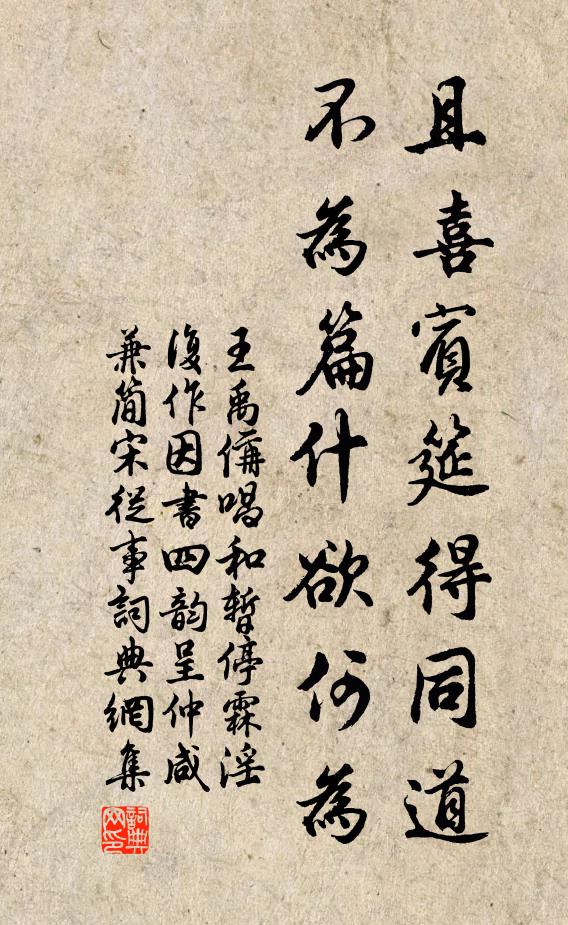 且喜賓筵得同道
不為篇什欲何為
王禹偁唱和暫停霖淫
復作因書四韵呈仲咸
兼简宋從事詞典網集
詞典
网印